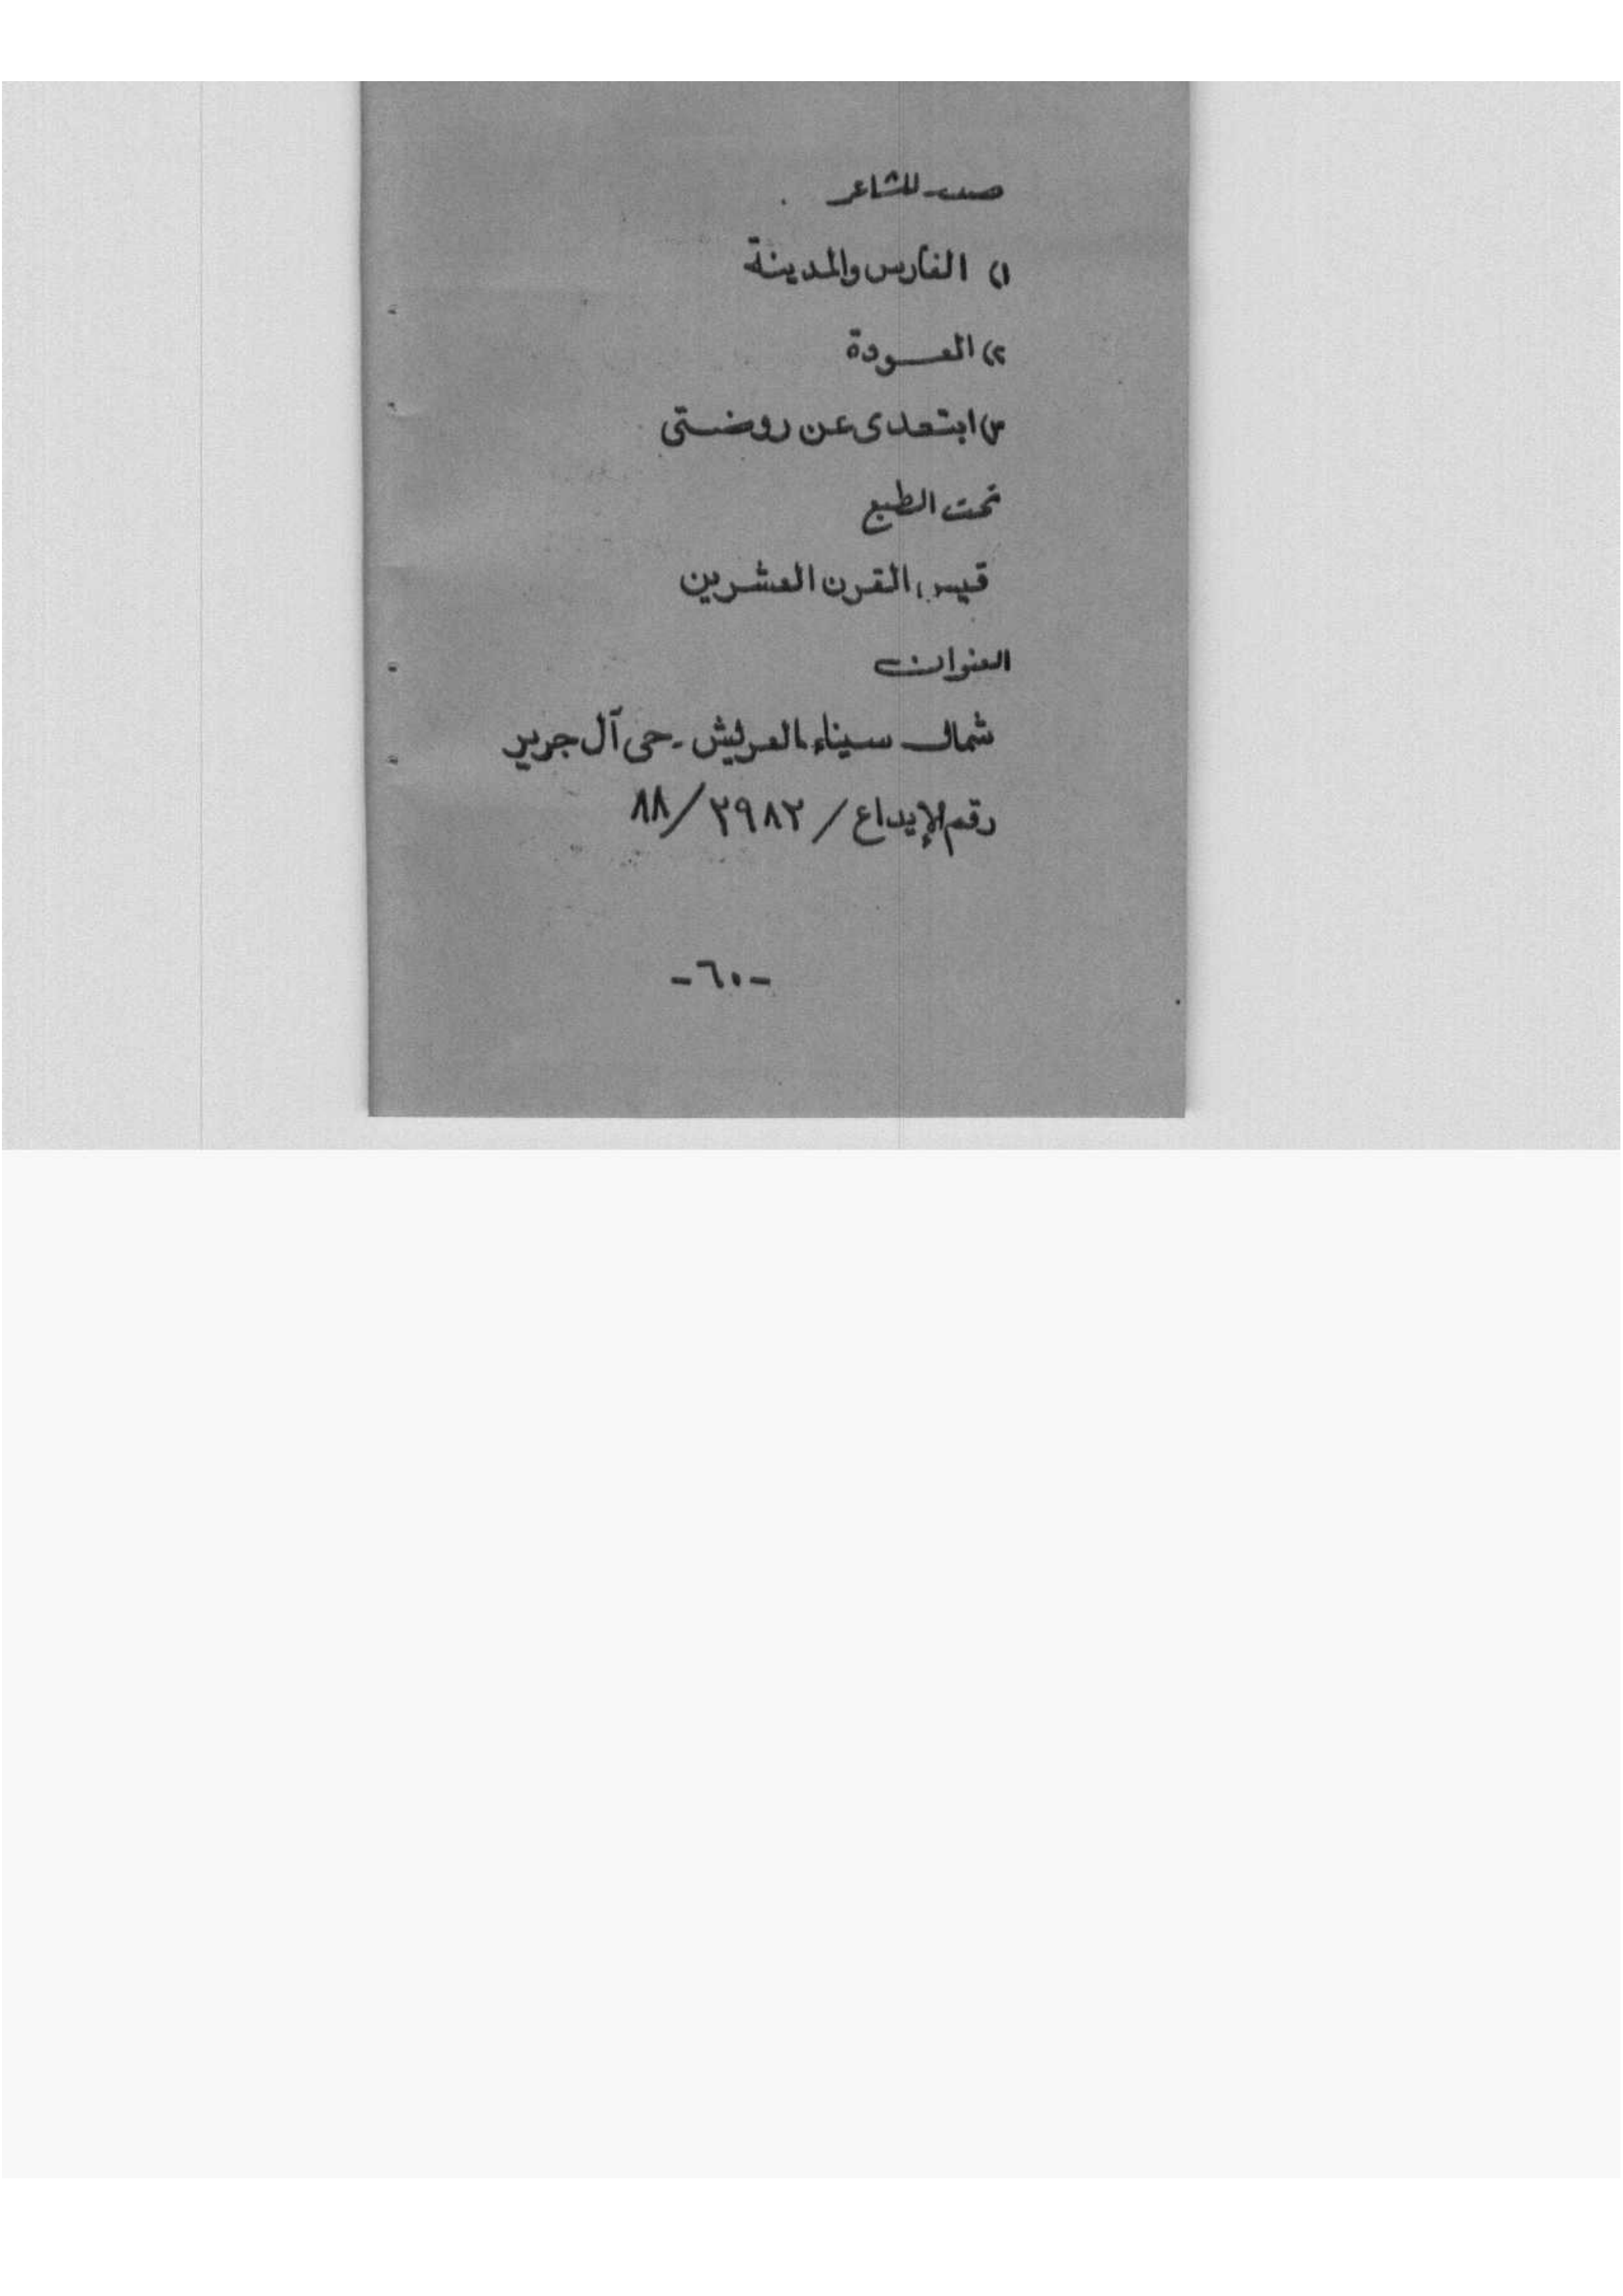 صدر للشاعر
١) الفارس والمدينة
٢) العودة
٣) ابتعدى عن روضتى
تحت الطبع
قيس القرن العشرين
العنوان
شمال سيناء العريش - حى آل جرير
رقم الإيداع / ٢٩٨٢ / ٨٨
- ٦٠ -